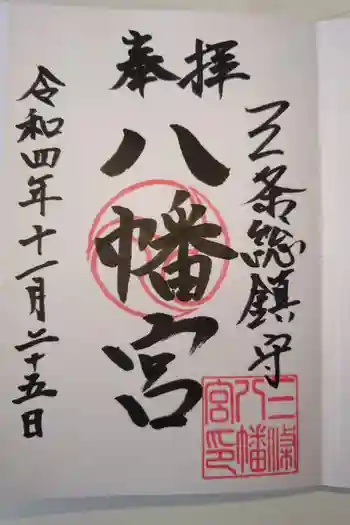 奉拝
三条総鎮守
八幡宮
令和四年十一月二十五日
三條
八幡
宮印